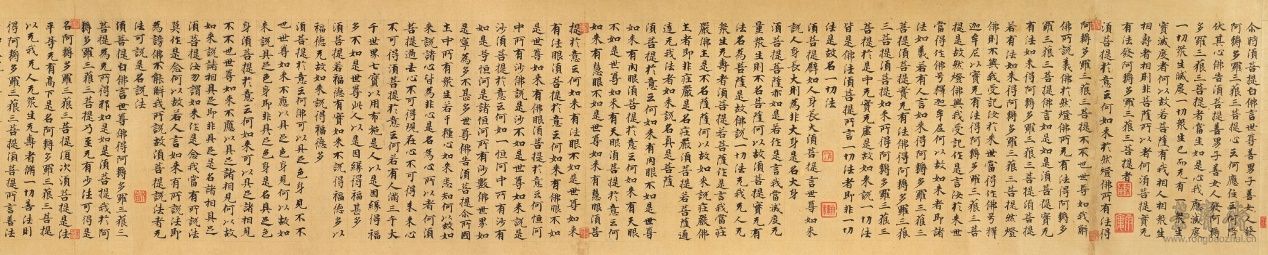 尒時須菩提白佛言世尊善男子善女人發
阿耨多羅三藐三菩提心云何應住云何降
伏其心佛告須菩提善男子善女人發阿耨
多羅三藐三菩提者當生如是心我應滅度
一切眾生滅度一切眾生已而无有一眾生
實滅度者何以故若菩薩有我相人相眾生
相壽者相則非菩薩所以者何須菩提實无
有法發阿耨多羅三藐三菩提者
須菩提於意云何如來於然燈佛所有法得
阿耨多羅三藐三菩提不不也世尊如我解
佛所說義佛於然燈佛所无有法得阿耨多
羅三藐三菩提佛言如是如是須菩提實无
有法如來得阿耨多羅三藐三菩提須菩提
若有法如來得阿耨多羅三藐三菩提然燈
佛則不與我受記汝於來世當得作佛号釋
迦牟尼以實无有法得阿耨多羅三藐三菩
提是故然燈佛與我受記作是言汝於來世
當得作佛号釋迦牟尼何以故如來者即諸
法如義若有人言如來得阿耨多羅三藐三
菩提須菩提實无有法佛得阿耨多羅三藐
三菩提須菩提如來所得阿耨多羅三藐三
菩提於是中无實无虛是故如來說一切法
皆是佛法須菩提所言一切法者即非一切
法是故名一切法
須菩提譬如人身長大須菩提言世尊如來
說人身長大則為非大身是名大身
須菩提菩薩亦如是若作是言我當滅度无
量眾生則不名菩薩何以故須菩提實无有
法名為菩薩是故佛說一切法无我无人无
眾生无壽者須菩提若菩薩作是言我當莊
嚴佛土是不名菩薩何以故如來說莊嚴佛
土者即非莊嚴是名莊嚴須菩提若菩薩通
達无我法者如來說名真是菩薩
須菩提於意云何如來有肉眼不如是世尊
如來有肉眼須菩提於意云何如來有天眼
不如是世尊如來有天眼須菩提於意云何
如來有慧眼不如是世尊如來有慧眼須菩
提於意云何如來有法眼不如是世尊如來
有法眼須菩提於意云何如來有佛眼不如
是世尊如來有佛眼須菩提於意云何恒河
中所有沙佛說是沙不如是世尊如來說是
沙須菩提於意云何如一恒河中所有沙有
如是等恒河是諸恒河所有沙數佛世界如
是寧為多不甚多世尊佛告須菩提尒所國
土中所有眾生若干種心如來悉知何以故如
來說諸心皆為非心是名為心所以者何須
菩提過去心不可得現在心不可得未來心
不可得須菩提於意云何若有人滿三千大
千世界七寶以用布施是人以是因緣得福
多不如是世尊此人以是因緣得福甚多
須菩提若福德有實如來不說得福德多以
福德无故如來說得福德多
須菩提於意云何佛可以具足色身見不不
也世尊如來不應以具足色身見何以故如
來說具足色身即非具足色身是名具足色
身須菩提於意云何如來可以具足諸相見
不不也世尊如來不應以具足諸相見何以故
如來說諸相具足即非具足是名諸相具足
須菩提汝勿謂如來作是念我當有所說法
莫作是念何以故若人言如來有所說法即
為謗佛不能解我所說故須菩提說法者无
法可說是名說法
須菩提白佛言世尊佛得阿耨多羅三藐三
菩提為无所得耶如是如是須菩提我於阿
耨多羅三藐三菩提乃至无有少法可得是
名阿耨多羅三藐三菩提復次須菩提是法
平等无有高下是名阿耨多羅三藐三菩提
以无我无人无眾生无壽者修一切善法則
得阿耨多羅三藐三菩提須菩提所言善法
www.rongbaozhai.cn